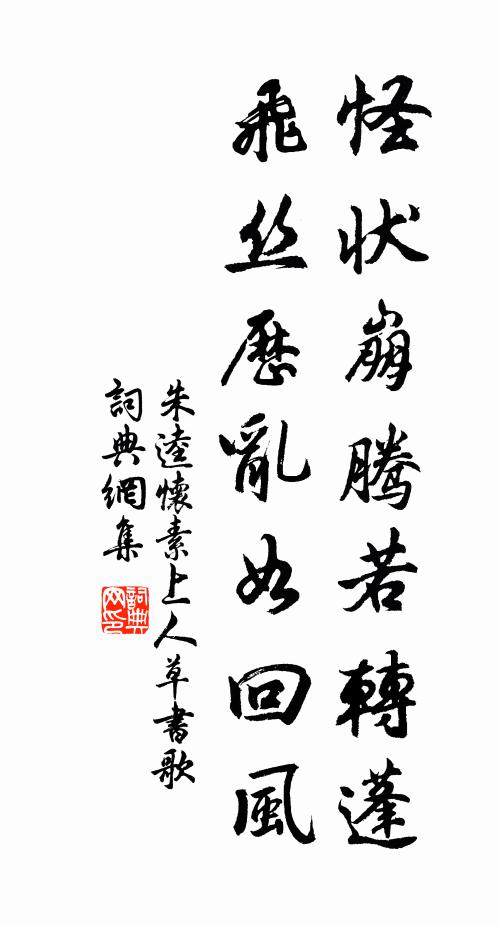 怪状崩騰若轉蓬
飛丝歷亂如回風
朱逵懷素上人草書歌
詞典網集
詞典网印